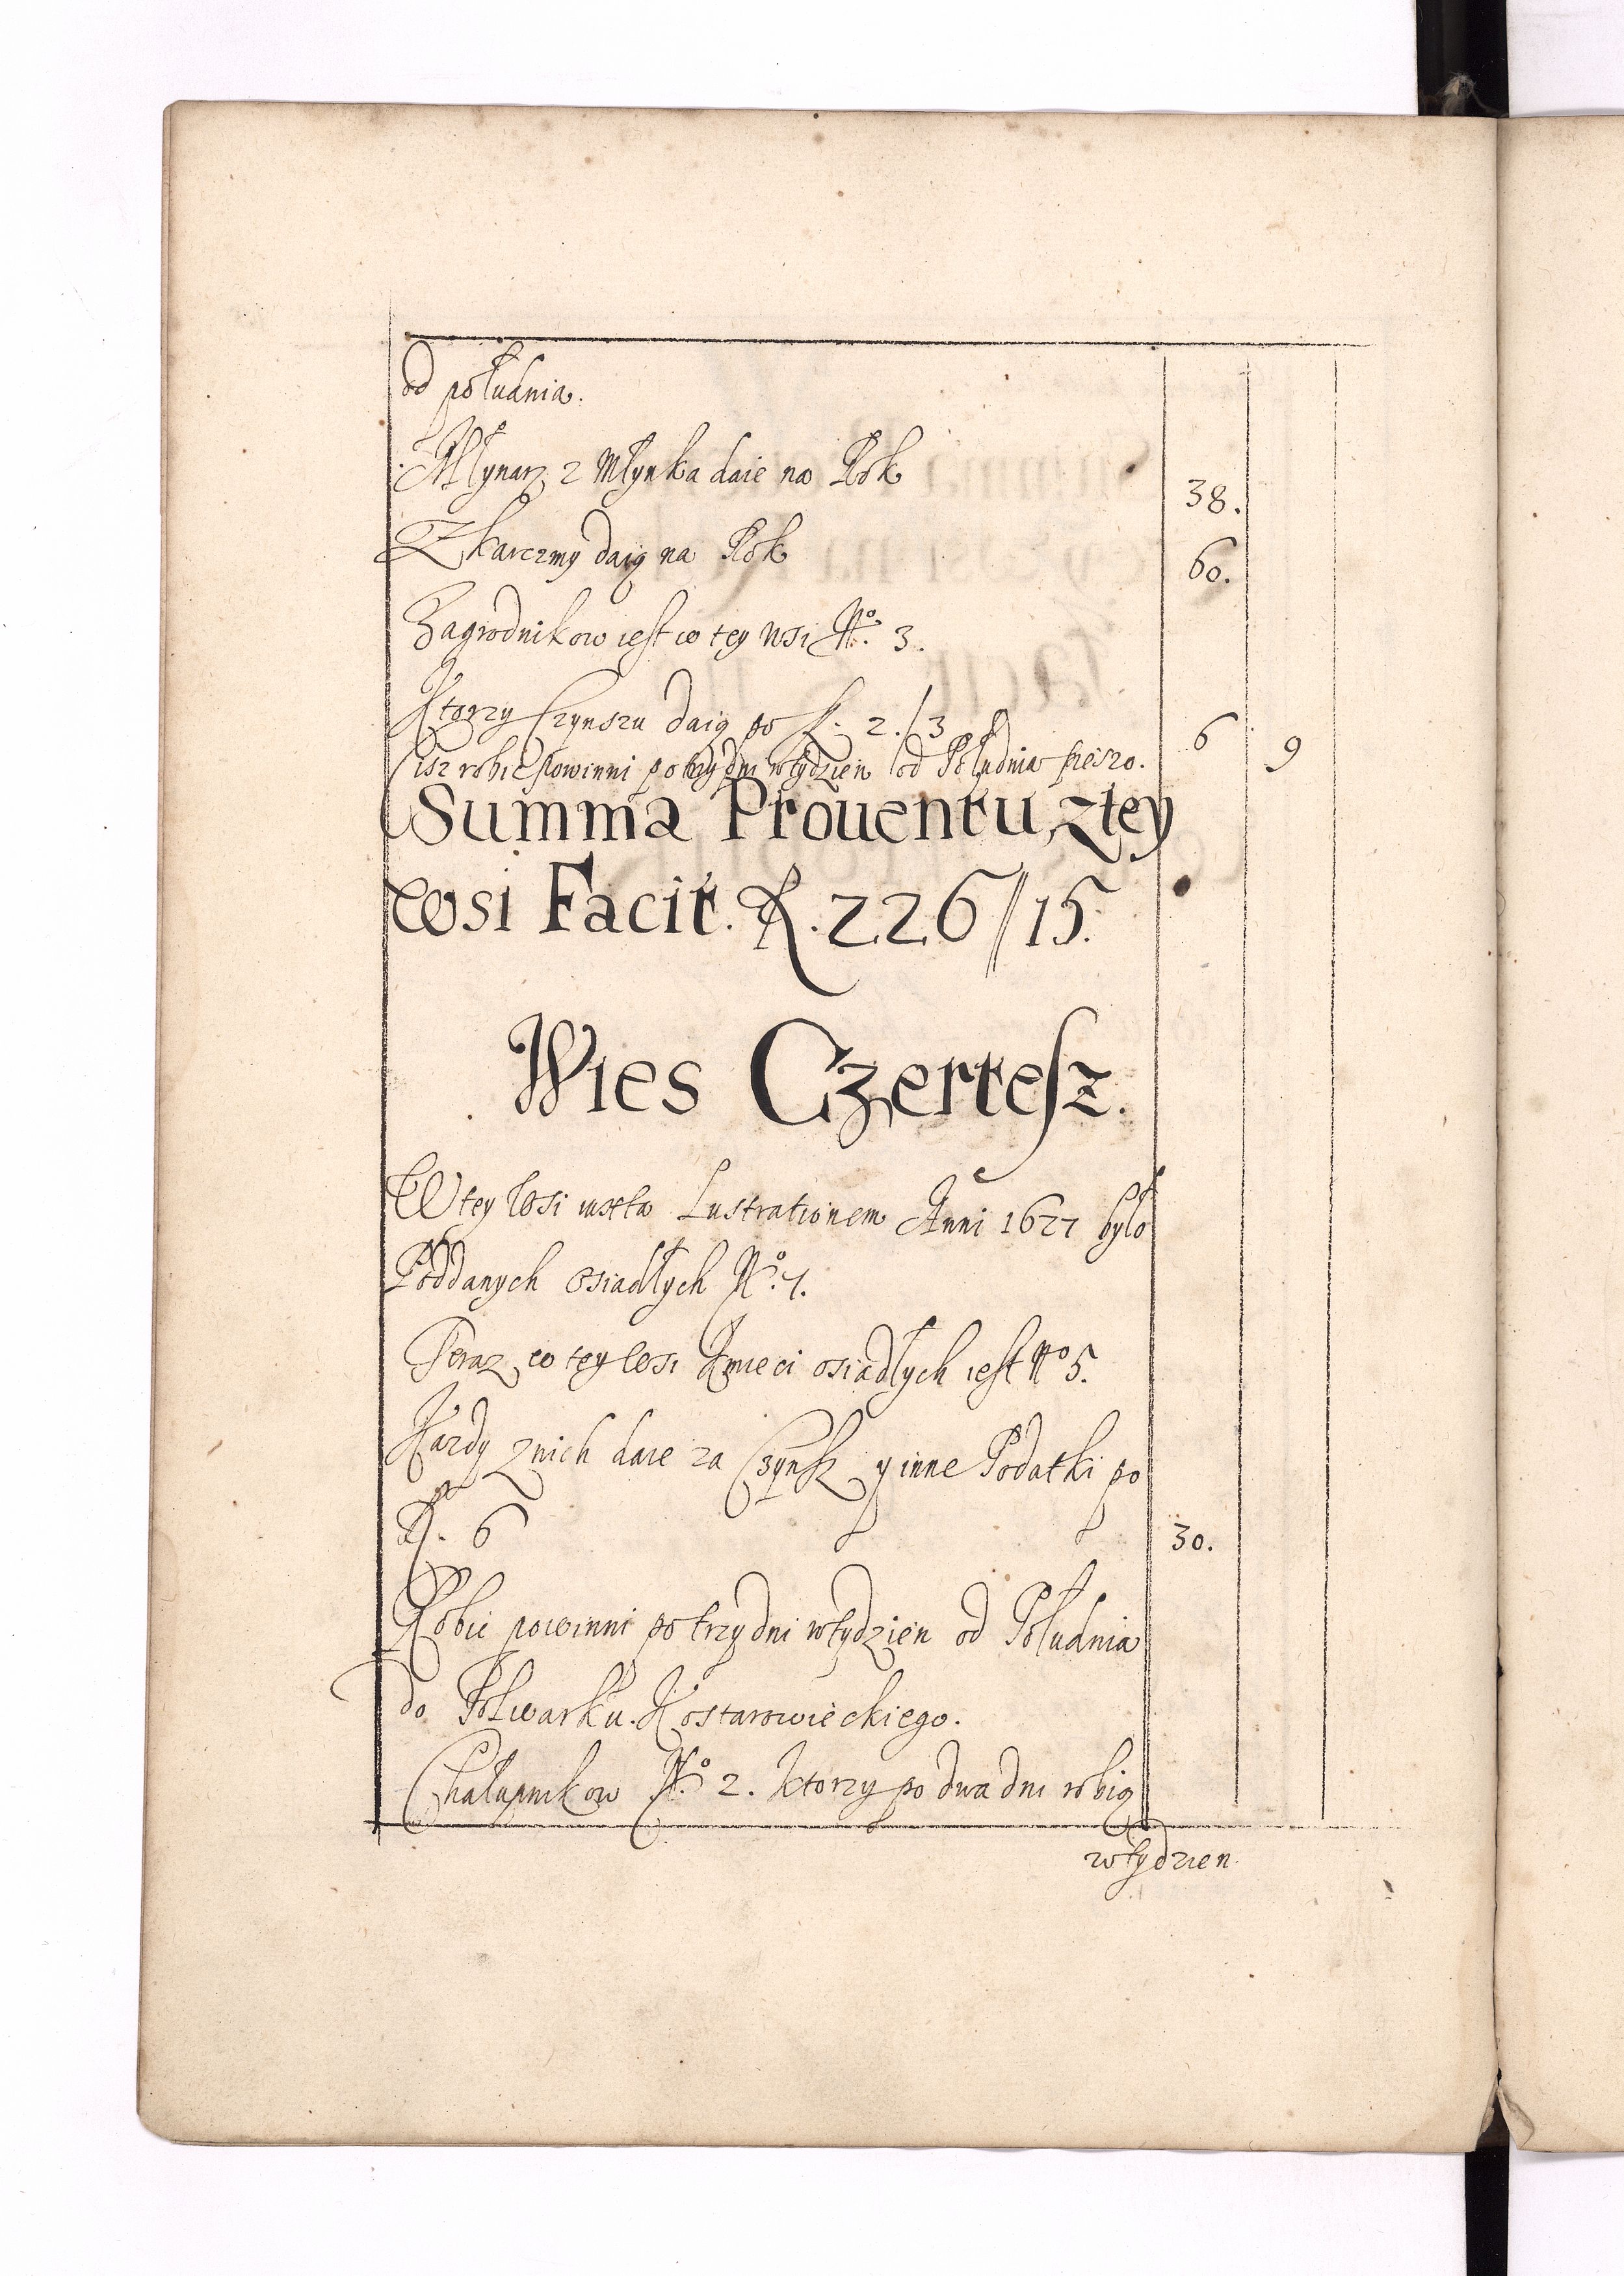 od południa.
Młynarz z Młynka daie na Rok 38.
Z karczmy daią na Rok 60.
Zagrodnikow iest w tey wsi No. 3.
Ktorzy Czynszu daią po f. 2./3 6 9
Cisz robić powinni po trzy dni wtydzien od Południa pieszo.
Summa Prouentu, z tey
wsi Facit. f. 226//15.
Wies Czertesz.
W tey wsi iuxta Lustrationem Anni 1627 było
Poddanych osiadłych No. 7.
Teraz w tey wsi Kmieci osiadłych iest No 5.
Kazdy z nich daie za Czynsz y inne Podatki po
f. 6 30.
Robic powinni po trzy dni wtydzien od Południa
do Folwarku Kostarowieckiego.
Chałupnikow No. 2. Ktorzy po dwa dni robią
wtydzien